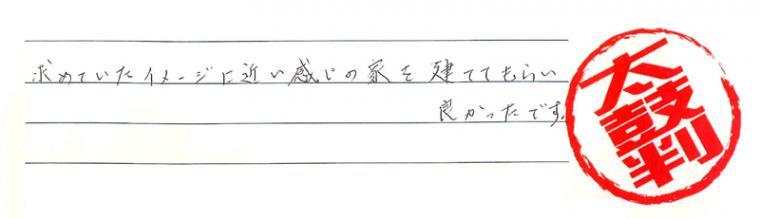 求めていたイメージに近い感じの家を建ててもらい
良かったです。
太鼓判